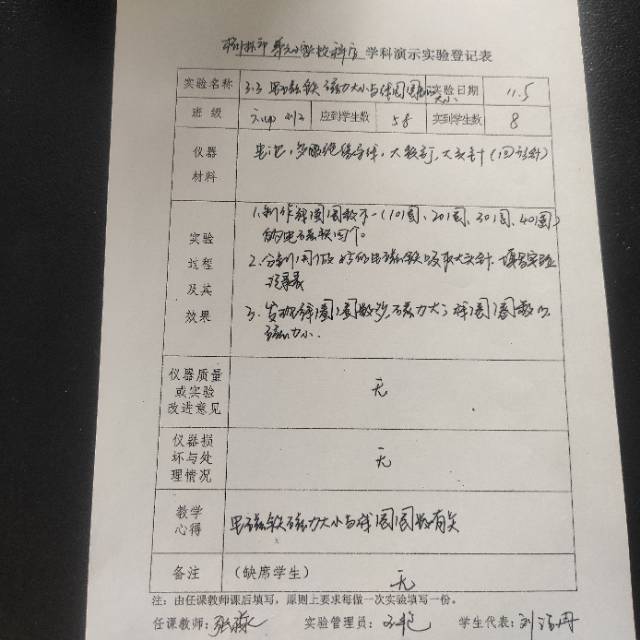 学科演示实验登记表
实验名称 3.3 电磁铁磁力大小与线圈圈数 大小 实验日期 11.5
班级 应到学生数 58 实到学生数 8
仪器材料 电池、多股绝缘导线、大铁钉、大头针(回形针)
实验过程及其效果
1.制作线圈圈数不一(10圈、20圈、30圈、40圈)
的电磁铁四个。
2.分别用做好的电磁铁吸取大头针,填写实验
记录表
3.发现线圈圈数多,磁力大;线圈圈数少
磁力小.
仪器质量或实验改进意见 无
仪器损坏与处理情况 无
教学心得 电磁铁磁力大小与线圈圈数有关
备注 (缺席学生) 无
注:由任课教师课后填写,原则上要求每做一次实验填写一份。
任课教师: 实验管理员: 学生代表: